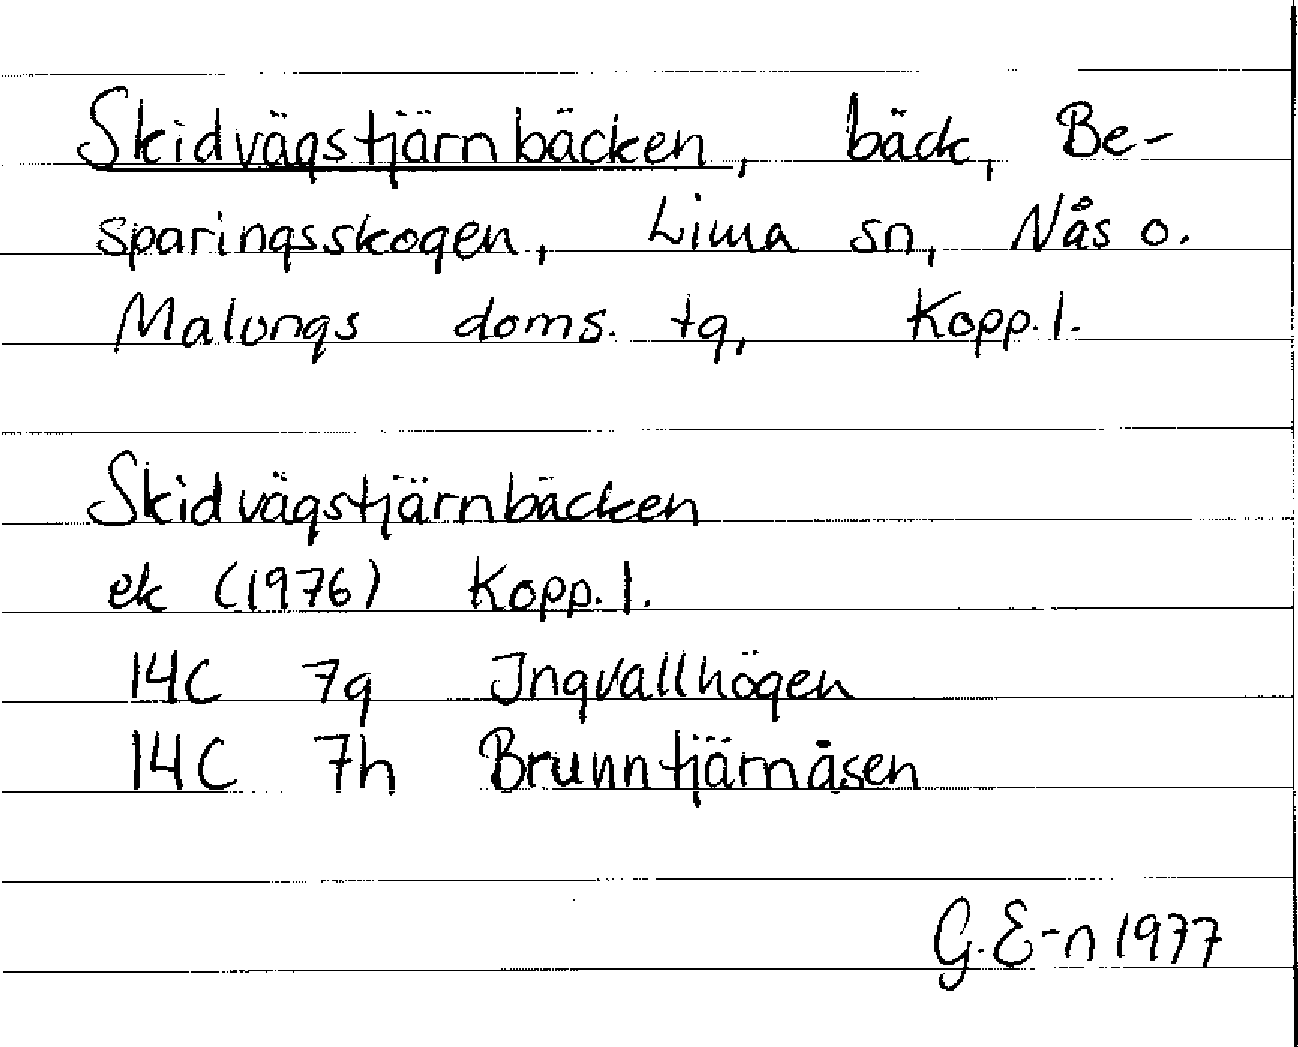 Skidvägstjärnbäcken, bäck, Be-
sparingsskogen, Lima sn, Nås o.
Malungs doms. tg, Kopp. l.
Skidvägstjärnbäcken
ek (1976) Kopp. l.
14C 7g Ingvallhögen
14C 7h Brunntjärnåsen
G. E-n 1977